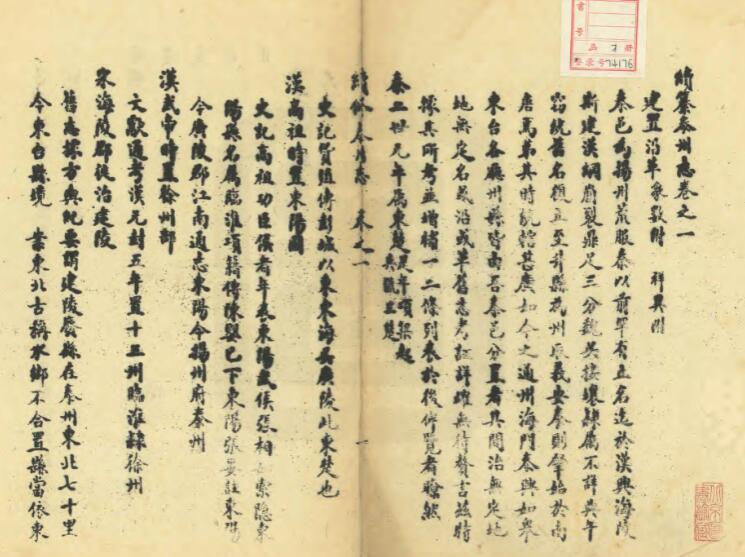 續纂泰州志卷之一
建置沿革象數附 祥異附
泰邑為揚州荒服秦以前罕有立名迄於漢興海陵
斯建漢綱廢裂鼎足三分魏吳接壤隸屬不詳其年
當統舊名復立至升縣為州取義安泰則肇始於南
唐焉第其時統轄甚廣如今之通州海門泰興如皋
東台各廳州縣皆由吾泰邑分置者其間治無定地
地無定名或沿或革舊志考証詳確無待贅言茲特
據其所考並增補一二條列表於後俾覽者瞭然
秦二世元年屬東楚是年項梁起兵號五楚
續修泰州志 卷之一 一
史記貨殖傳彭城以東東海吳廣陵此東楚也
漢高祖時置東陽國
史記高祖功臣侯者年表東陽武侯張相如索隱東
陽縣名屬臨淮項籍傳陳嬰已下東陽張晏註東陽
今廣陵郡江南通志東陽今揚州府泰州
漢武帝時置徐州部
文獻通考漢元封五年置十三州臨淮隸徐州
宋海陵郡徙治建陵
舊志據方輿紀要謂建陵廢縣在泰州東北七十里
今東台縣境 案東北古稱水鄉不合置縣當依東
書
號
函 册
登录号74176